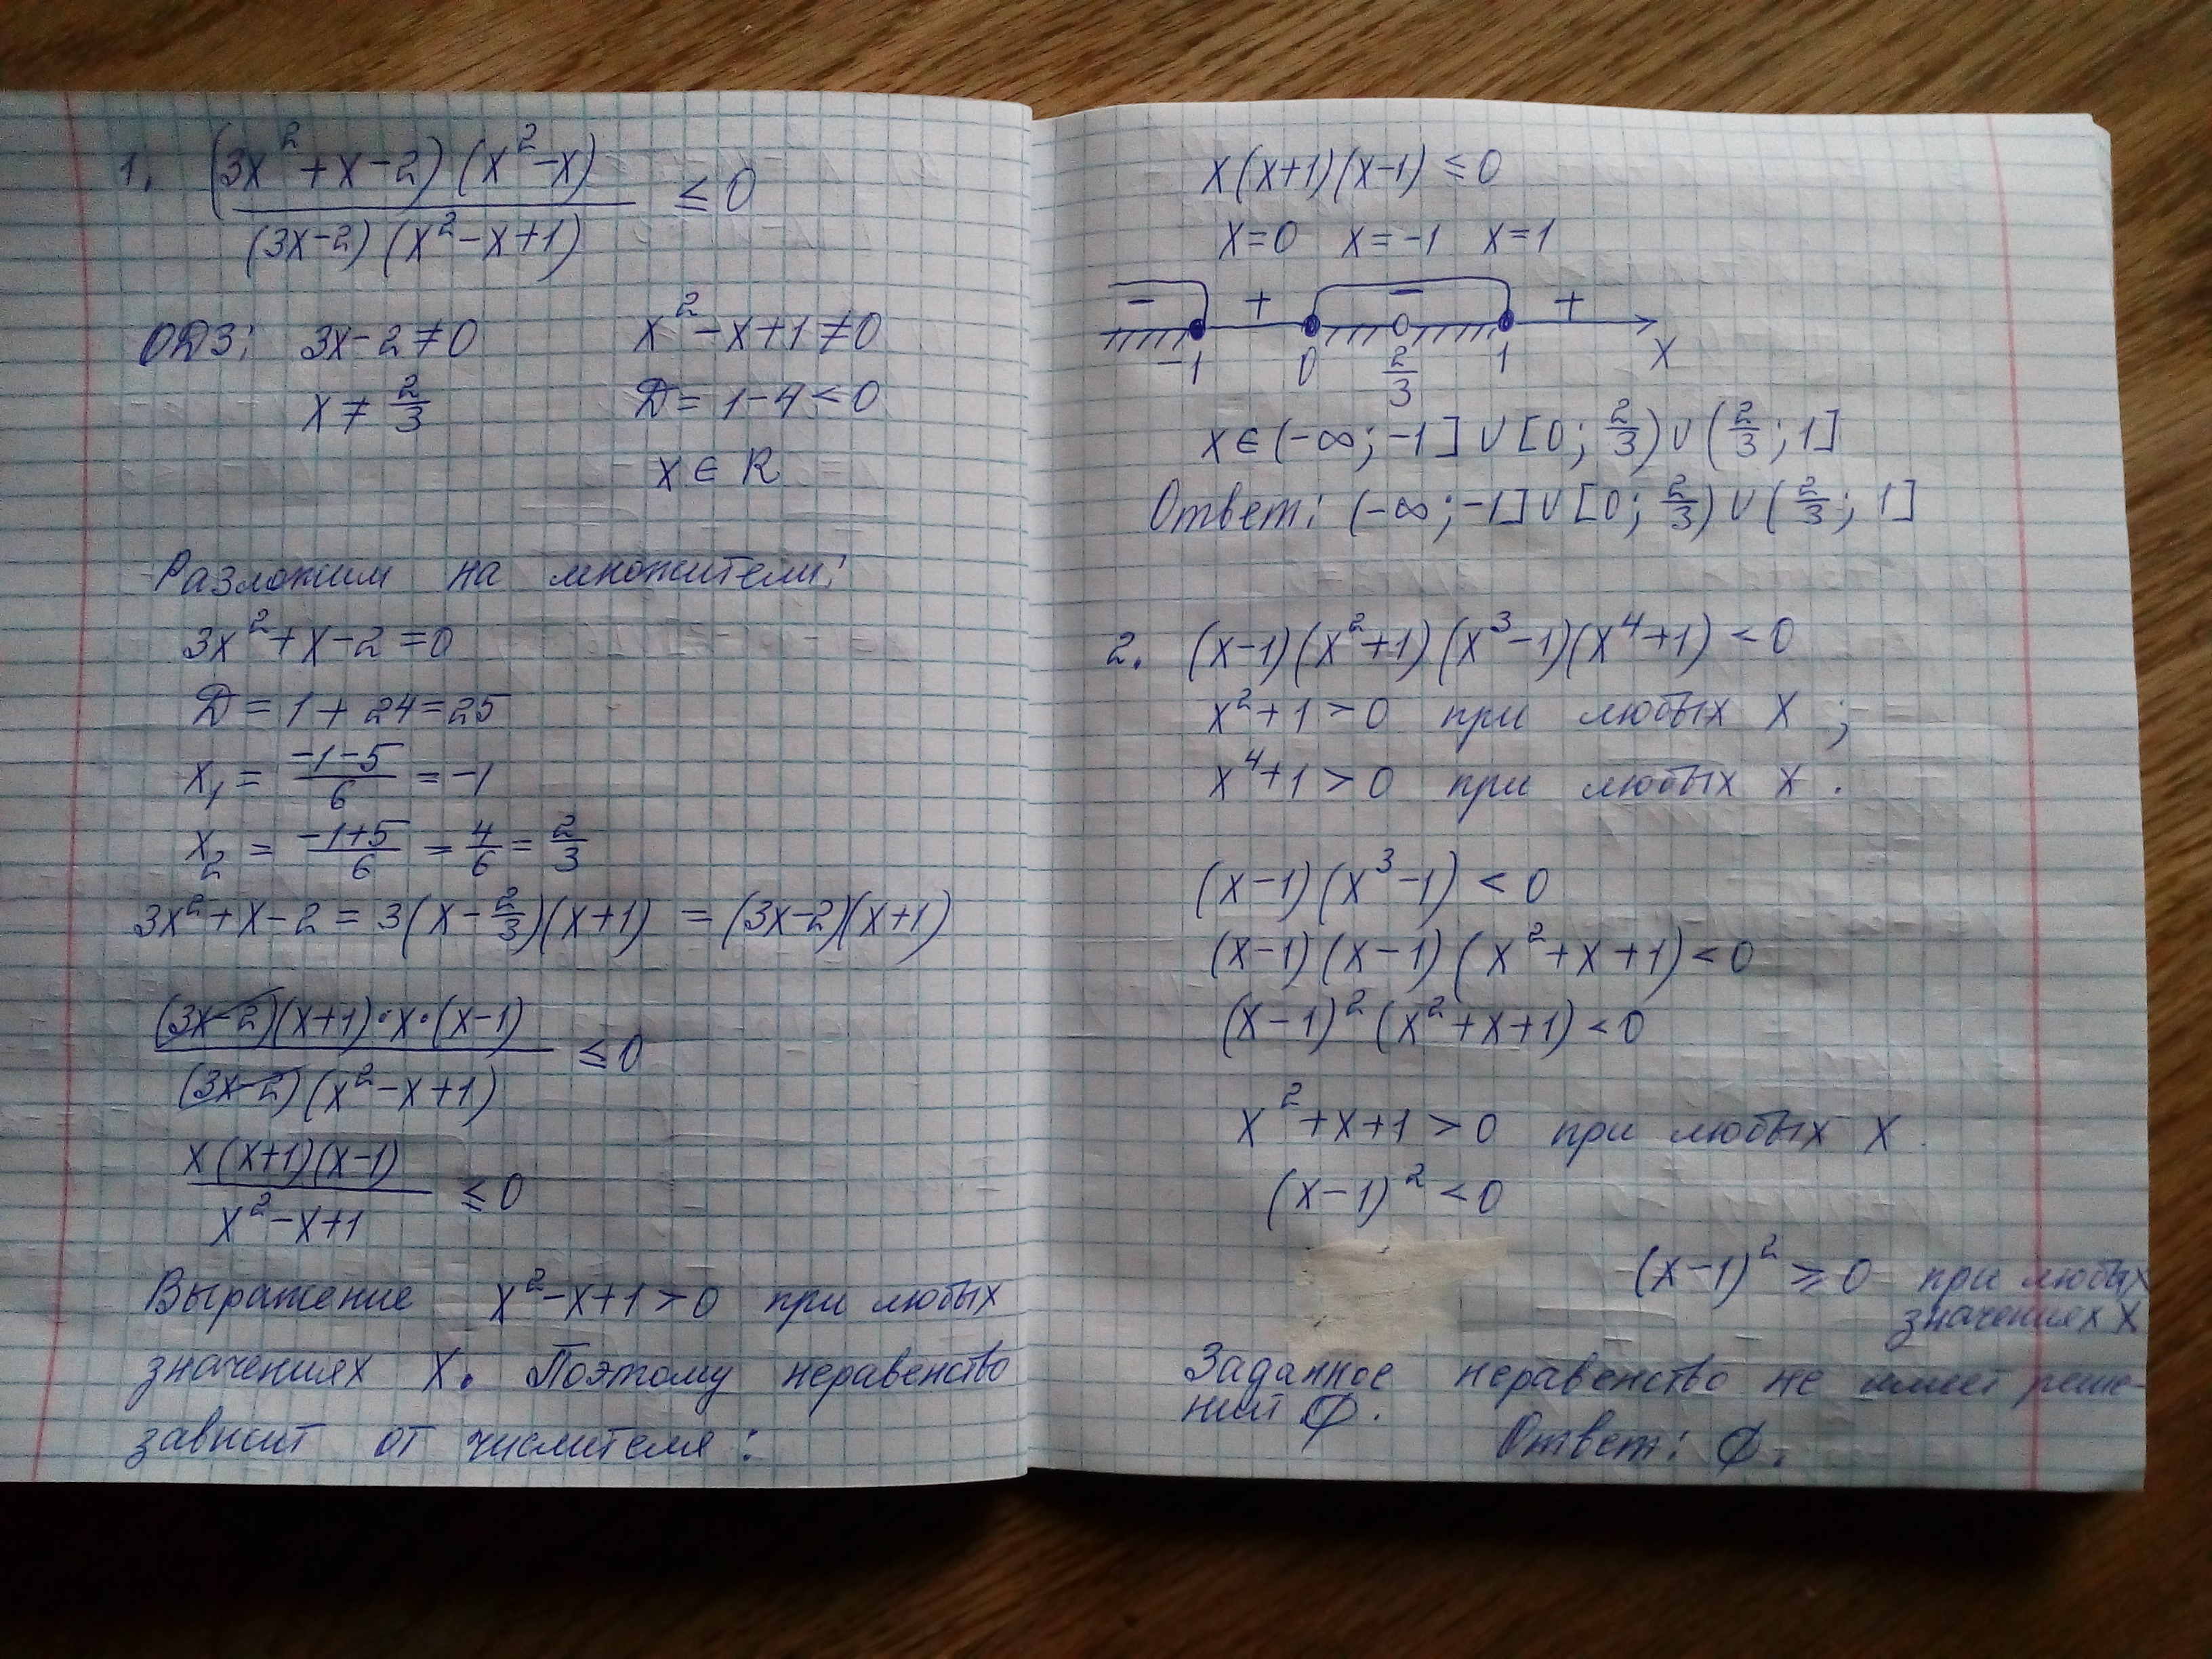 1. (3x²+x-2)(x²-x) / (3x-2)(x²-x+1) ≤ 0
ОДЗ: 3x-2≠0 x²-x+1≠0
x≠2/3 D=1-4<0
x∈R
Разложим на множители:
3x²+x-2=0
D=1+24=25
x₁ = (-1-5)/6 = -1
x₂ = (-1+5)/6 = 4/6 = 2/3
3x²+x-2 = 3(x-2/3)(x+1) = (3x-2)(x+1)
(3x-2)(x+1)·x·(x-1) / (3x-2)(x²-x+1) ≤ 0
x(x+1)(x-1) / x²-x+1 ≤ 0
Выражение x²-x+1>0 при любых
значениях x. Поэтому неравенство
зависит от числителя:
x(x+1)(x-1) ≤ 0
x=0 x=-1 x=1
- + - +
-1 0 2/3 1 x
x∈(-∞; -1]∪[0; 2/3)∪(2/3; 1]
Ответ: (-∞; -1]∪[0; 2/3)∪(2/3; 1]
2. (x-1)(x²+1)(x³-1)(x⁴+1) < 0
x²+1>0 при любых x;
x⁴+1>0 при любых x.
(x-1)(x³-1) < 0
(x-1)(x-1)(x²+x+1)<0
(x-1)²(x²+x+1)<0
x²+x+1>0 при любых x
(x-1)²<0
(x-1)² ≥ 0 при любых
значениях x
Заданное неравенство не имеет реше-
ний ∅.
Ответ: ∅.